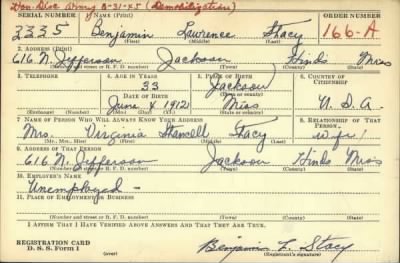 Hon Disc Army 8-31-45 (Demobilization)
SERIAL NUMBER 1. NAME (Print) ORDER NUMBER
3335 Benjamin Lawrence Stacy 166-A
(First) (Middle) (Last)
2. ADDRESS (Print)
616 N. Jefferson Jackson Hinds Miss
(Number and street or R. F. D. number) (Town) (County) (State)
3. TELEPHONE 4. AGE IN YEARS 5. PLACE OF BIRTH 6. COUNTRY OF CITIZENSHIP
33 Jackson
DATE OF BIRTH (Town or county)
June 4 1912 Miss U. S. A.
(Exchange) (Number) (Mo.) (Day) (Yr.) (State or country)
7. NAME OF PERSON WHO WILL ALWAYS KNOW YOUR ADDRESS 8. RELATIONSHIP OF THAT PERSON
Mrs. Virginia Stancell Stacy wife
(Mr., Mrs., Miss) (First) (Middle) (Last)
9. ADDRESS OF THAT PERSON
616 N. Jefferson Jackson Hinds Miss
(Number and street or R. F. D. number) (Town) (County) (State)
10. EMPLOYER'S NAME
Unemployed -
11. PLACE OF EMPLOYMENT OR BUSINESS
(Number and street or R. F. D. number) (Town) (County) (State)
I AFFIRM THAT I HAVE VERIFIED ABOVE ANSWERS AND THAT THEY ARE TRUE.
REGISTRATION CARD
D. S. S. Form 1 Benjamin L. Stacy
(Registrant's signature)